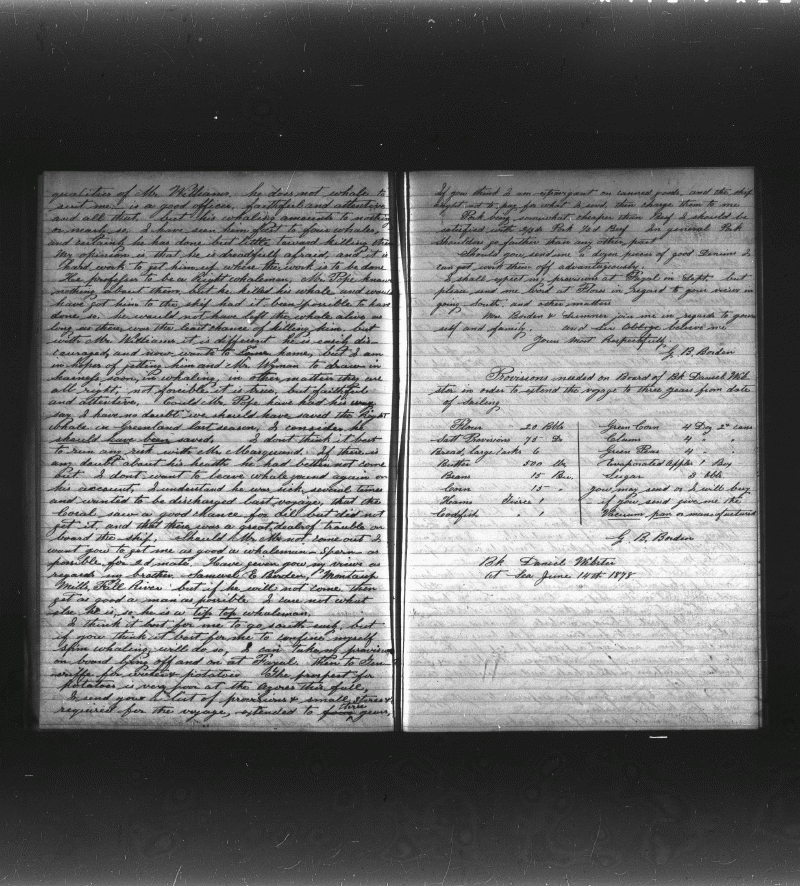 qualities of Mr. Williams, he does not whale to
suit me, is a good officer, faithful and attentive
and all that, but his whaling amounts to nothing
or nearly so. I have seen him fast to four whales,
and certainly he has done but little toward killing them
My opinion is that he is dreadfully afraid, and it is
hard work to get him up where the work is to be done
He proffers to be a Right whaleman, Mr. Pope knew
nothing about them, but he killed his whale and would
have got him to the ship had it been possible to have
done so, he would not have left the whale alive as
long as there was the least chance of killing him, but
with Mr. Williams it is different he is easily dis-
couraged, and now wants to home, but I am
in hopes of getting him and Mr. Wyman to draw in
harness soon, in whaling, in other matters they are
all right, not forcible it is true, but faithful
and attentive, Could Mr. Pope have had his way,
say, I have no doubt we should have saved the Right
whale in Greenland last season, I consider he
should have been saved. I dont think it best
to run any risk with Mr. Marquand. If there is
any doubt about his health he had better not come
but I dont want to leave whale ground again on
his account, I understand he was sick several times
and wanted to be discharged last voyage, that the
Coral saw a good chance for Oil but did not
get it, and that there was a great deal of trouble on
board the ship. Should Mr. M not come out I
want you to get me as good a whaleman Sperm as
possible for 2d mate. Have given you my views as
regards my brother Samuel E Borden, Montaup
Mills, Fall River but if he will not come then
get as good a man possible I care not what
else he is, so he is a tip top whaleman.
I think it best for me to go south, but
if you think it best for me to confine myself
spm whaling will do so, I can take my provisions
on board lying off and on at Fayal then to Ten-
riffe for water & potatoes The prospect for
potatoes is very poor at the Azores this fall,
I send you a list of provisions & small stores
required for the voyage, extended to three years,
If you think I am extravigant on canned goods, and the ship
ought not to pay for what I send, then charge them to me
Pork being somewhat cheaper than Beef I should be
satisfied with 2/3ds Pork 1/3d Beef In general Pork
shoulders go farther than any other part
Should you send me a dozen pieces of good Denims I
can get rid them off advantageously
I shall expect my provisions at Fayal in Sept. but
please send me word at Flores in regard to your views on
going South, and other matters
Mrs Borden & Summer join me in regards to your
self and family, and Sir Oblige believe me
Yours Most Respectfully
G. B. Borden
Provisions needed on Board of Bk Daniel Web
ster in order to extend the voyage to three years from date
of sailing
Flour 20 Bbls
Salt Provisions 75 Do
Bread, large casks 6
Butter 500 lbs
Beans 15 Bus.
Corn 15 "
Hams Tierce 1
Codfish " 1
Green Corn 4 Doz 2lb cans
Clams 4 " "
Green Peas 4 " "
Evaporated Apples 1 Box
Sugar 3 bbls
you, send or I will buy
if you send give me the
Vacuum pan or manufactured
G. B. Borden
Bk Daniel Webster
At Sea June 14th 1878